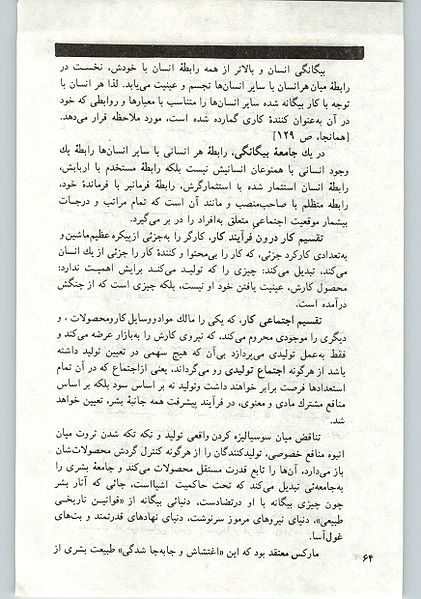 بیگانگی انسان و بالاتر از همه رابطهٔ انسان با خودش، نخست در
رابطهٔ میان هرانسان با سایر انسان‌ها تجسم و عینیت می‌یابد. لذا هر انسان با
توجه با کار بیگانه شده سایر انسان‌ها را متناسب با معیارها و روابطی که خود
در آن به‌عنوان کنندهٔ کاری گمارده شده است، مورد ملاحظه قرار می‌دهد.
[همانجا، ص ۱۲۹]
در یك جامعهٔ بیگانگی، رابطهٔ هر انسانی با سایر انسان‌ها رابطهٔ یك
وجود انسانی با همنوعان انسانیش نیست بلکه رابطهٔ مستخدم با اربابش،
رابطهٔ انسان استثمار شده با استثمارگرش، رابطهٔ فرمانبر با فرماندهٔ خود،
رابطه متظلم با صاحب‌منصب و مانند آن است که تمام مراتب و درجات
بیشمار موقعیت اجتماعی متعلق به‌افراد را در بر می‌گیرد.
تقسیم کار درون فرآیند کار، کارگر را به‌جزئی ازپیکره عظیم‌ماشین و
به‌تعدادی کارکرد جزئی، که کار را بی‌محتوا و کنندهٔ کار را جزئی از یك انسان
می‌کند، تبدیل می‌کند: چیزی را که تولیـد می‌کنـد بـرایش اهمیـت ندارد:
محصول کارش، عینیت یافتن خود او نیست، بلکه چیزی است که از چنگش
درآمده است.
تقسیم اجتماعی کار، که یکی را مالك موادووسایل‌کارومحصولات، و
دیگری را موجودی محروم می‌کند، که نیروی کارش را به‌بازار عرضه می‌کند و
فقط به‌عمل تولیدی می‌پردازد بی‌آن که هیچ سهمی در تعیین تولید داشته
باشد از هرگونه اجتماع تولیدی رو می‌گرداند، یعنی ازاجتماع که در آن تمام
استعدادها فرصت برابر خواهند داشت وتولید نه بر اساس سود بلکه بر اساس
منافع مشترك مادی و معنوی، در فرآیند پیشرفت همه جانبهٔ بشر، تعیین خواهد
شد.
تناقض میان سوسیالیزه کردن واقعی تولید و تکه تکه شدن ثروت میان
انبوه منافع خصوصی، تولیدکنندگان را از هرگونه کنترل گردش محصولات‌شان
باز می‌دارد، آن‌ها را تابع قدرت مستقل محصولات می‌کند و جامعهٔ بشری را
به‌جامعه‌ئی تبدیل می‌کند که تحت حاکمیت اشیااست، جائی که آثار بشر
چون چیزی بیگانه با او درتضادست، دنیائی بیگانه از «قوانین تاریخـی
طبیعی»، دنیای نیروهای مرموز سرنوشت، دنیای نهادهای قدرتمند و بت‌های
غول‌آسا.
مارکس معتقد بود که این «اغتشاش و جابه‌جا شدگی» طبیعت بشری از
۶۴